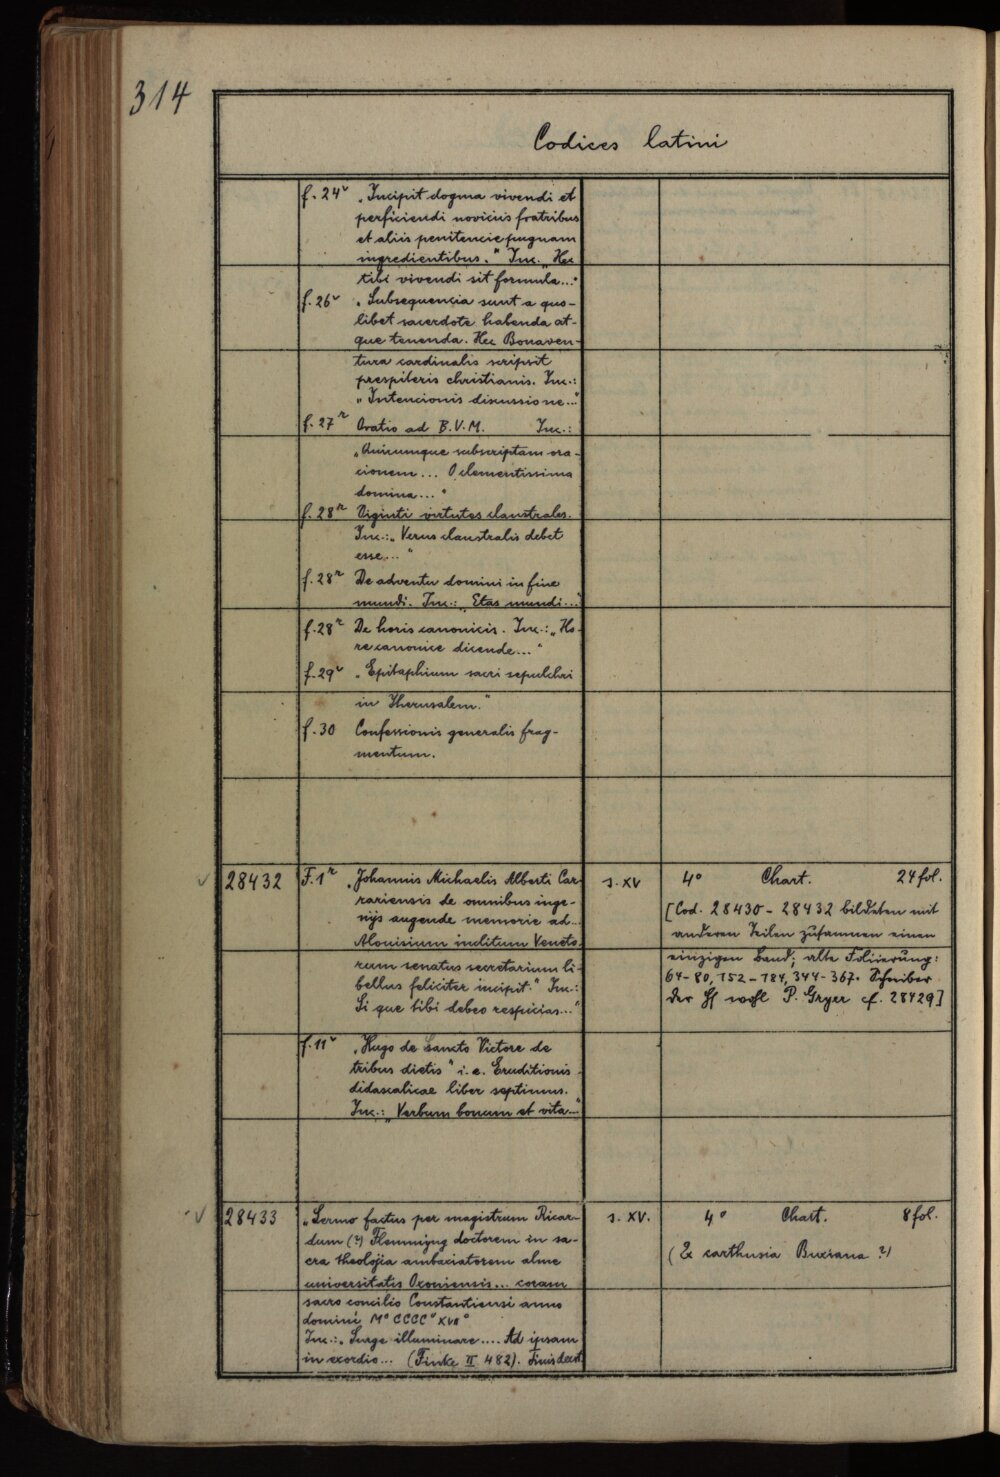 314
Codices latini
f. 24v „Incipit dogma vivendi et
perficiendi noviciis fratribus
et aliis penitencie pugnam
ingredientibus." Inc. „Hec
tibi vivendi sit formula..."
f. 26v „Subsequencia sunt a quo-
libet sacerdote habenda at-
que tenenda. Hec Bonaven-
tura cardinalis scripsit
prespiteris christianis. Inc.:
„Intencionis discussione..."
f. 27r Oratio ad B.V.M. Inc.:
„Quicumque subscriptam ora-
cionem... O clementissima
domina..."
f. 28r Viginti virtutes claustrales.
Inc.: „Verus claustralis debet
esse..."
f. 28r De adventu domini in fine
mundi. Inc.: „Etas mundi..."
f. 28r De horis canonicis. Inc.: „Ho-
re canonice dicende..."
f. 29v „Epitaphium sacri sepulchri
in Jherusalem."
f. 30 Confessionis generalis frag-
mentum.
28432 F. 1r „Johannis Michaelis Alberti Car-
rariensis de omnibus inge-
nijs augende memorie ad...
Alouisium inclitum Veneto
rum senatus secretarium li-
bellus feliciter incipit." Inc.:
Si que tibi debeo respicias..."
s. XV 4° Chart. 24 fol.
[Cod. 28430 - 28432 bildeten mit
anderen Teilen zusammen einen
einzigen Band; alte Foliierung:
64-80, 152-184, 344-367. Schreiber
der Hs wohl P. Gryer cf. 28429]
f. 11v „Hugo de Sancto Victore de
tribus dietis" i. e. Eruditionis
didascalicae liber septimus.
Inc.: „Verbum bonum et vita..."
28433 „Sermo factus per magistrum Ricar-
dum (?) Flemmijng doctorem in sa-
cra theologia ambaciatorem alme
universitatis Oxoniensis... coram
sacro concilio Constantiensi anno
domini M° CCCC° XVII°
Inc.: „Surge illuminare.... Ad ipsam
in exordio... (Finke II 482). Finis deest
s. XV. 4° Chart. 8 fol.
(Ex carthusia Buxiana ?)